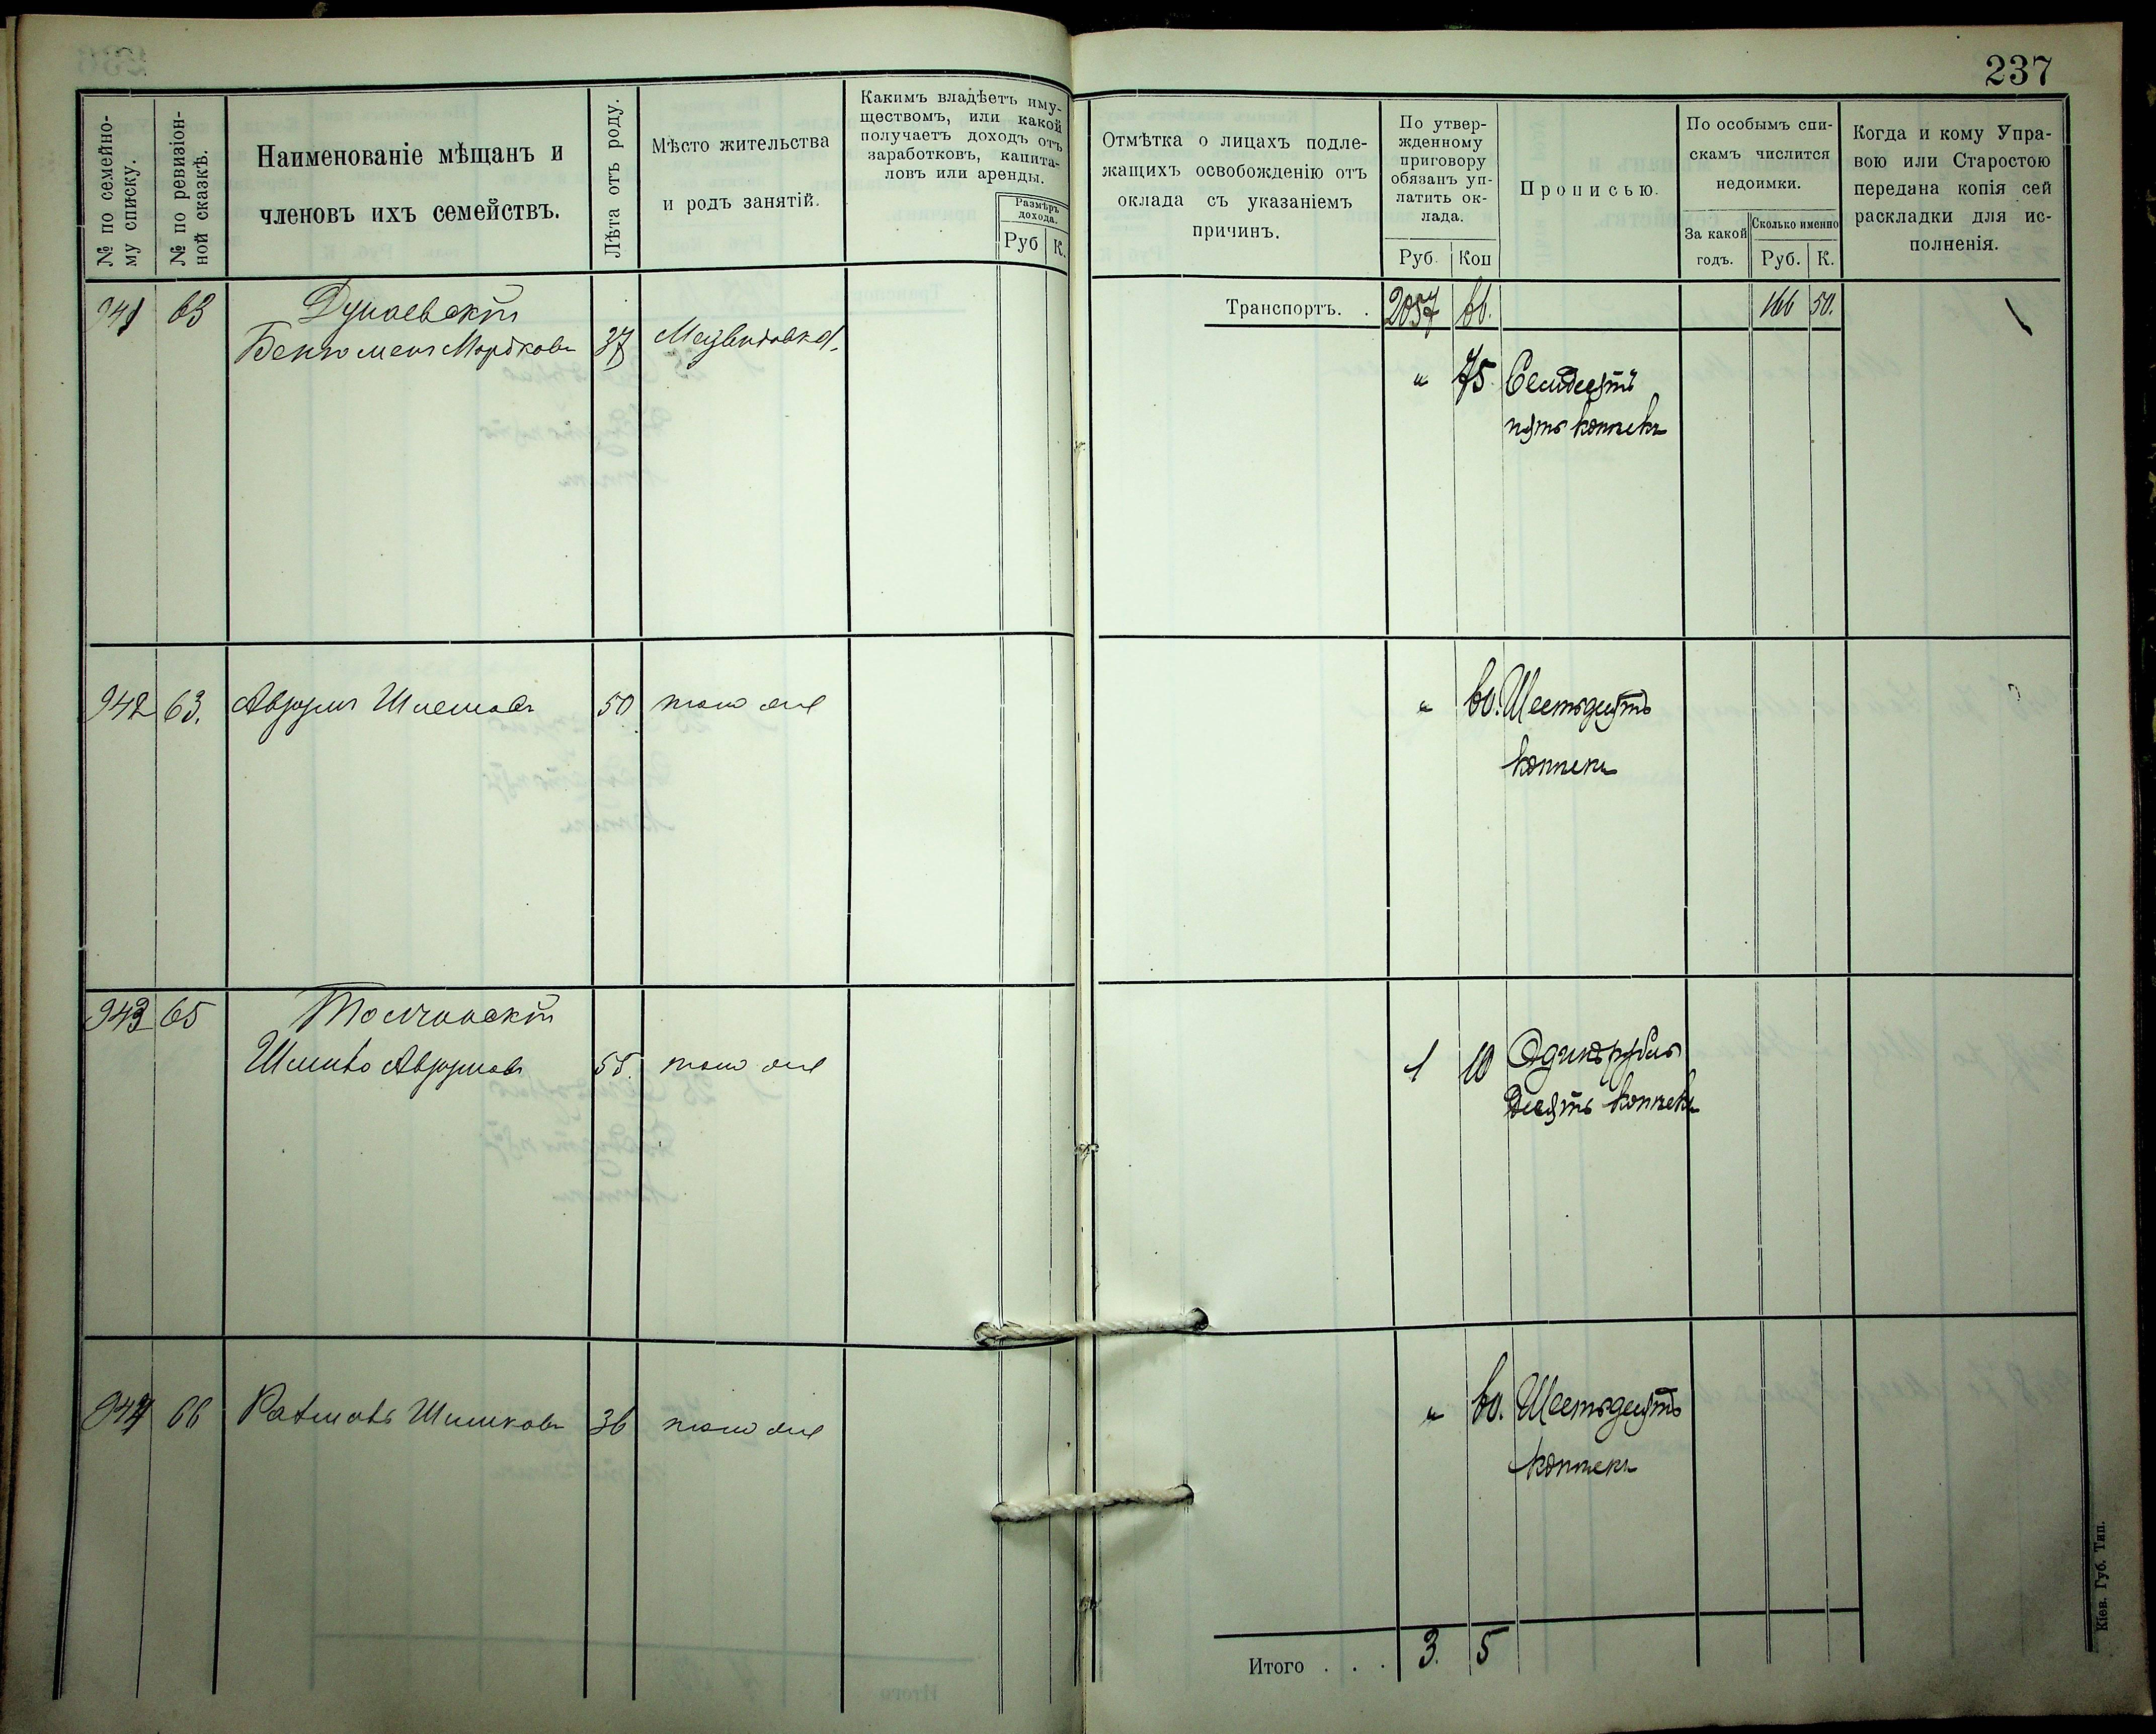 237
№ по семейно-
му списку.
№ по ревизіон-
ной сказкѣ.
Наименованіе мѣщанъ и
членовъ ихъ семействъ.
Лѣта отъ роду.
Мѣсто жительства
и родъ занятій.
Какимъ владѣетъ иму-
ществомъ, или какой
получаетъ доходъ отъ
заработковъ, капита-
ловъ или аренды.
Размѣръ
дохода.
Руб К.
Отмѣтка о лицахъ подле-
жащихъ освобожденію отъ
оклада съ указаніемъ
причинъ.
По утвер-
жденному
приговору
обязанъ уп-
латить ок-
лада.
Руб. Коп
Прописью.
По особымъ спи-
скамъ числится
недоимки.
За какой
годъ.
Сколько именно
Руб. К.
Когда и кому Упра-
вою или Старостою
передана копія сей
раскладки для ис-
полненія.
Транспортъ. . 2057 66. 166 50.
941 63 Дунаевскій
Мордковъ 37 Медвидовка
" 75 Семдесятъ
пять копѣекъ
942 63. Аврумъ 50 тоже
" 60. Шестьдесятъ
копѣекъ
943 65 Толчинскій
Шливо Аврумовъ 55. тоже
1 10 Одинъ рубль
десять копѣекъ
944 66 36 тоже
" 60. Шестьдесятъ
копѣекъ
Итого . . . 3. 5
Кіев. Губ. Тип.